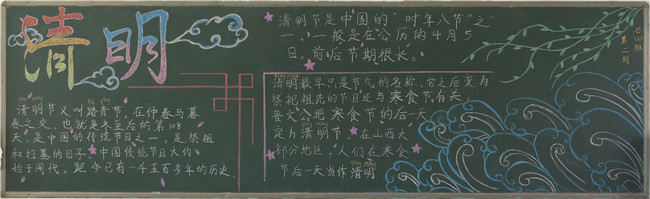 清明
清明节又叫踏青节,在仲春与暮
春之交,也就是冬至后的第108
天,是中国的传统节日之一,是祭祖
和扫墓的日子。中国传统节日大约
始于周代,距今已有一千五百多年的历史。
清明节是中国的“时年八节”之
一,一般是在公历的4月5
日,前后节期很长。
清明最早只是节气的名称,它之后变为
祭祀祖先的节日还与寒食节有关
晋文公把寒食节的后一天
定为清明节。在山西大
部分地区,人们在寒食
节后一天当作清明
第二期